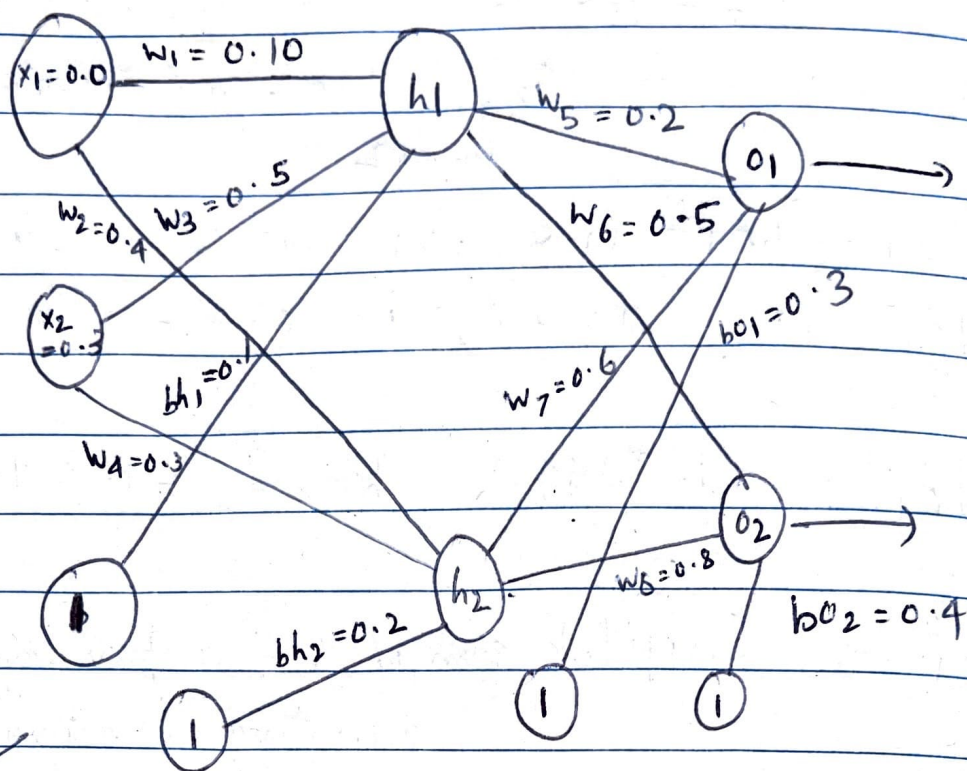 x1=0.0
w1 = 0.10
h1
w5 = 0.2
o1
w2=0.4
w3 = 0.5
w6 = 0.5
x2
=0.3
bh1=0.1
w7=0.6
bo1=0.3
w4=0.3
o2
h2
w8=0.8
bo2 = 0.4
bh2 = 0.2
1
1
1